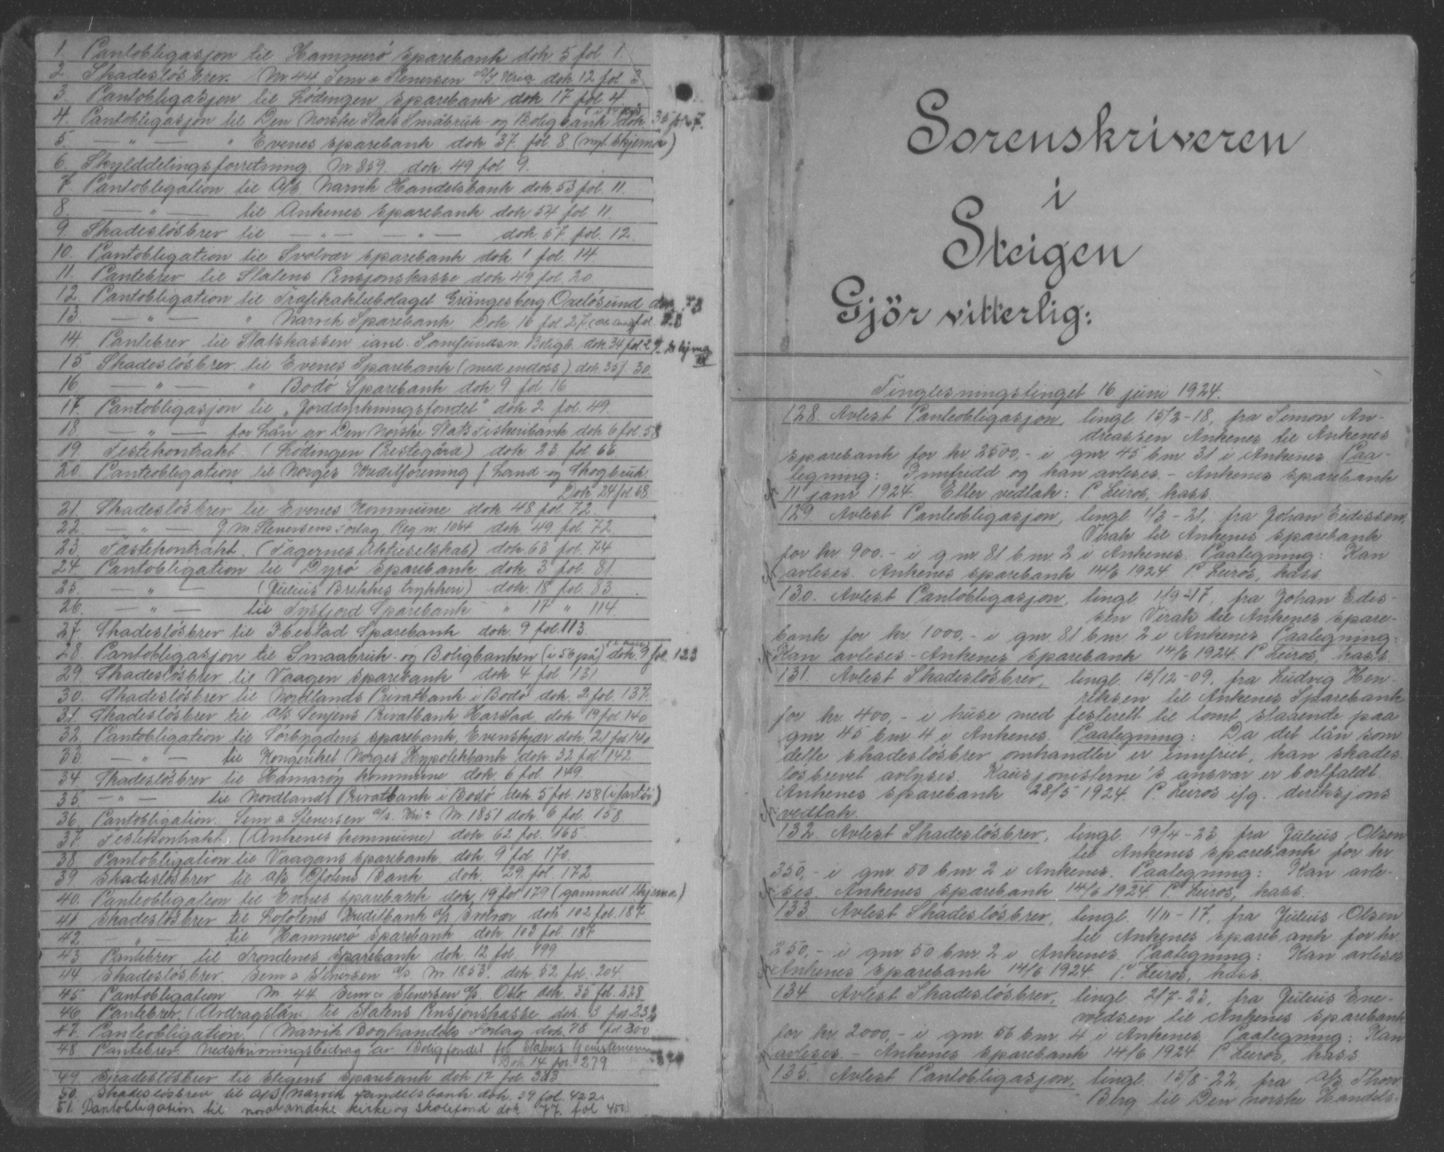 1. Pantobligasjon til Hammerö Sparebank dok 5 fol 1
2. Skadeslösbrev. M 44 Sem & Stenersen A/S dok 12 fol 3
3. Pantobligasjon til Lödingen Sparebank dok 17 fol 4
4. Pantobligasjon til Den Norske Stats Småbruk og Boligbank dok 35 fol 7.
5 — " — " Evenes Sparebank dok 37 fol 8 (nyt skjema)
6. Skylddelingsforretning M 859. dok 49 fol 9.
7 Pantobligation til A/S Narvik Handelsbank dok 53 fol 11.
8. — " — til Ankenes Sparebank dok 54 fol 11
9 Skadeslösbrev til — " — — " — dok 57 fol. 12.
10. Pantobligation til Svolvær Sparebank dok 1 fol. 14
11. Pantebrev til Statens Pensjonskasse dok 49 fol 20
12 Pantobligation til Trafikaktiebolaget Grängesberg Oxelösund dok
13 — " — " Narvik Sparebank Dok 16 fol 27
14 Pantebrev til Statskassen dok 34 fol 29
15 Skadeslösbrev til Evenes Sparebank (med endoss) dok 35 f. 30.
16 — " — " Bodö Sparebank dok 9 fol 16
17. Pantobligasjon til „Jorddyrkningsfondet" dok 2 fol. 49.
18. — " — for Lån av Den Norske Stats Fiskeribank dok 6 fol 58
19 Festekontrakt (Lödingen Prestegård) dok 23 fol 66
20. Pantobligation til Norges Kreditforening f Land og Skogbruk
Dok 24 fol 68
21. Skadeslösbrev til Evenes Kommune dok 48 fol. 72
22 — " — Stenersens Forlag Reg. M. 1064 dok 49 fol 72
23. Fastekontrakt. (Fagernes Aktieselskab) dok 63 fol. 74
24 Pantobligation til Dyrö Sparebank dok 3 fol. 81
25. — " — (Julius Brekkes trykkeri) dok 18 fol. 83
26. — " — til Tysfjord Sparebank " 17 " 114
27. Skadeslösbrev til Ibestad Sparebank dok. 9 fol. 113.
28. Pantobligasjon til Smaabruk- og Boligbanken dok 9 fol. 123
29 Skadeslösbrev til Vaagen Sparebank dok 4 fol 131
30. Skadeslösbrev til Nordlands Privatbank i Bodö dok. 2 fol. 137.
31. Skadeslösbrev til A/S Senjens Privatbank Harstad dok 19 fol 140
32 Pantobligation til Forbygdens Sparebank, Evenskjær dok. 21 fol 140
33. — " — til Kongeriket Norges Hypotekbank dok 32 fol 142
34 Skadeslösbrev til Hamarøy kommune dok 6 fol 149
35. — " — til Nordlands Privatbank i Bodö dok 5 fol 158
36. Pantobligation. Sem & Stenersen A/S. M 1851 dok 6 fol 158
37 Festekontrakt (Ankenes kommune) dok 62 fol. 165.
38 Pantobligation til Vaagans Sparebank dok 9 fol 170
39 Skadeslösbrev til A/S Ofotens Bank dok. 29 fol 172
40. Pantobligation til Evenes Sparebank dok 19 fol 179 (gammelt skjema)
41 Skadeslösbrev til Lofotens Kreditbank A/S Svolvær dok 102 fol. 187
42 — " — til Hammerö Sparebank dok 103 fol. 187
43 Pantebrev til Trondenes Sparebank dok. 12 fol 199
44 Skadeslösbrev Sem & Stenersen A/S M 1853. dok 52 fol. 204
45 Pantobligation M 44 Sem & Stenersen A/S Oslo dok. 35 fol. 228
46 Pantebrev. (Andragslån til Statens Pensjonskasse dok. 3 fol 232
47. Panteobligation Narvik Boghandels Forlag dok. 78 fol. 300
48 Pantebrev Nedskrivningsbidrag av Boligfondet for Statens
Dok 14 fol 279
49 Skadeslösbrev til Steigens Sparebank dok 12 fol. 383
50. Skadeslösbrev til A/S Narvik Handelsbank dok. 39 fol. 422
51. Pantobligation til nordlandske kirke og skolefond dok 77. fol 450
Sorenskriveren
i
Steigen
Gjör vitterlig:
Tinglesningstinget 16 juni 1924.
128. Avlest Panteobligasjon, tingl 15/2-18, fra Simon An-
dreassen Ankenes til Ankenes
Sparebank for kr 2500,- i gnr 45 bnr 31 i Ankenes Paa-
tegning: Innfridd og kan avleses - Ankenes Sparebank
11 janr 1924. Efter vedtak: P Leiros, kass.
129 Avlest Panteobligasjon, tingl 1/3-21, fra Johan Edissen,
Virak til Ankenes Sparebank
for kr 900.- i gnr 81 bnr 2 i Ankenes. Paategning: Kan
avleses. Ankenes Sparebank 14/6 1924 P Leiros, kass
130. Avlest Pantobligasjon, tingl 1/9-17, fra Johan Edis-
sen Virak til Ankenes Spare-
bank for kr 1000,- i gnr 81 bnr 2 i Ankenes Paategning:
Kan avleses - Ankenes Sparebank 14/6 1924 P Leiros, kass
131. Avlest Skadeslösbrev, tingl 15/12-09, fra Ludvig Hen-
riksen til Ankenes Sparebank
for kr 400,- i huse med festerett til tomt, staaende paa
gnr 45 bnr 4 i Ankenes. Paategning: Da det lån som
dette skadeslösbrev omhandler er innfriet, kan skades
lösbrevet avlyses. Kausjonisterne's ansvar er bortfaldt.
Ankenes Sparebank 28/5 1924. P. Leiros e/g. direksjons
vedtak.
132. Avlest Skadeslösbrev, tingl 19/4-23 fra Julius Olsen
til Ankenes Sparebank for kr
350,- i gnr 50 bnr 2 i Ankenes. Paategning: Kan avle-
ses. Ankenes Sparebank 14/6 1924 P Leiros, kass.
133 Avlest Skadeslösbrev, tingl. 1/11-17. fra Julius Olsen
til Ankenes Sparebank for kr.
250,- i gnr 50 bnr 2 i Ankenes. Paategning: Kan avleses
Ankenes Sparebank 14/6 1924 P Leiros, kass.
134 Avlest Skadeslösbrev, tingl 2/7-23, fra Julius Ene-
voldsen til Ankenes Sparebank
for kr 2000,- i gnr 56 bnr 4 i Ankenes Paategning: Kan
avleses. - Ankenes Sparebank 14/6 1924 P Leiros, kass
135. Avlest Pantobligasjon, tingl 15/8-22, fra A/S Thon
Berg til Den Norske Handels-